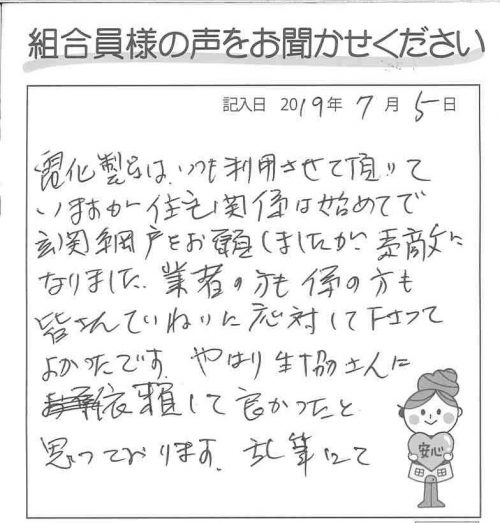 組合員様の声をお聞かせください
記入日 2019年 7月 5日
電化製品は、いつも利用させて頂いて
いますが住宅関係は始めてで
玄関網戸をお願しましたが、素敵に
なりました。業者の方も係の方も
皆さんていねいに応対して下さって
よかったです。やはり生協さんに
依頼して良かったと
思っております。乱筆にて
安心